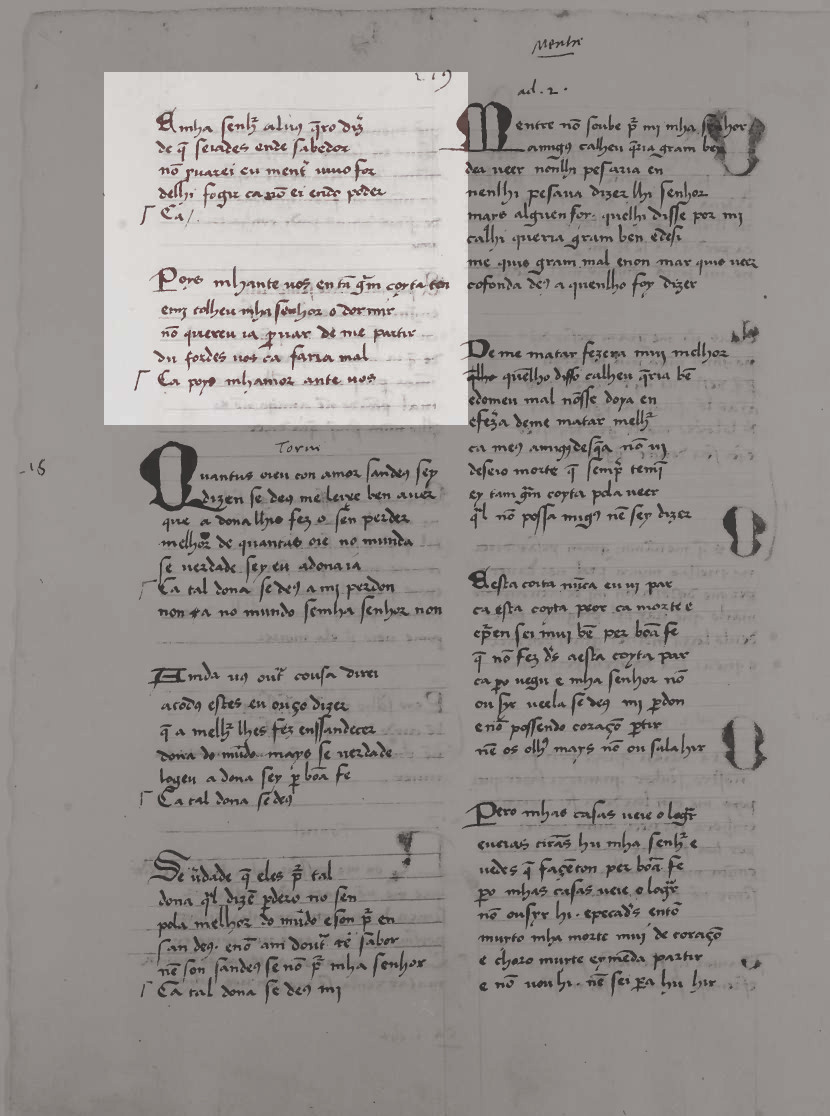 279
Amha senhr̄ al uꝯ q̄ro diz̄
de q̄ seiades ende sabedor
nō ꝓuarei eu ment̄ uiuo for
delhi fogir ca nō ei endꝯ poder
Ca /.
Poys mhante uos en tā gr̄m coyta ten
emi tolheu mha senhor o dormir
nō quereu ia ꝓuar de me partir
du fordes uos ca faria mal
Ca poys mhamor ante uos
Torni
18
Quantus oieu con amor sandeꝯ sey
dizen se deꝯ me leixe ben auer
que a dona lhis fez o sēn perder
melhor de quantas oie no mundo
se uerdade sey eu a dona ia
Ca tal dona se deꝯ a mi perdon
non ᵲa no mundo se mha senhor non
Ainda uꝯ out̄ cousa direi
a todꝯ estes eu ouço dizer
q̄ a melhr̄ lhes fez enssandecer
dona do mūdo mays se uerdade
logeu a dona sey ꝑ boā fe
Ca tal dona se deꝯ
Se u̅dade q̄ eles pr̄ tal
dona q̄l dizē ꝑdero no sen
pola melhor do mūdo e son pr̄ en
sandeꝯ. enō am dout̄ rē sabor
nē son sandeꝯ se nō pr̄ mha senhor
Ca tal dona se deꝯ mi
Mentre
ad. 2.
Mentre nō soube pr̄ mi mha senhor
amigꝯ ca lheu q̄ria gram ben
dea ueer nonlhi pesaria en
nen lhi pesaua dizer lhi senhor
mays alguen foy. que lhi disse por mi
ca lhi queria gram ben e desi
me quis gram mal e non mar quis ueer
cofonda deꝯ a quen lho foy dizer
De me matar fezera mui melhor
q̄lho quēlho disso ca lheu q̄ria bē
e do meu mal nōsse doya en
e fez̄a de me matar melhr̄
ca meꝯ amigꝯ desq̄a nō ui
deseio morte q̄ semp̄ temi
ey tam gr̄m coyta pola ueer
q̄l nō posso amigꝯ nē sey dizer
A esta coita nūca eu ui par
ca esta coyta peor ca morte e
e pr̄en sei mui bē per boā fe
q̄ nō fez ds̄ a esta coyta par
ca ꝑo uegu e mha senhor nō
ousy ueela se deꝯ mi ꝑdon
e nō posso end o coraçō ꝑtir
nē os olhꝯ mays nō ou sala hir
Pero mhas casas ueio o logr̄
e ueias cirās hu mha senhr̄ e
uedes q̄ faç en ton per boā fe
ꝑo mhas casas ueio o logr̄
nō ousyr hi. e pecads̄ entō
muyto mha morte mui de coraçō
e choro muyte ey me da partir
e nō uou hi. nē sei ꝑa hu hir